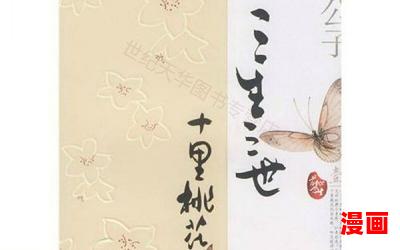 公子
三生三世
十里桃花
世纪天华图书专
漫画